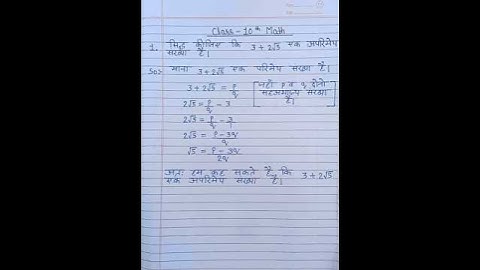 Class - 10th Math
1. सिद्ध कीजिए कि 3 + 2√5 एक अपरिमेय
संख्या है।
Sol माना 3 + 2√5 एक परिमेय संख्या है।
3 + 2√5 = p/q [जहाँ p व q दोनों
सहअभाज्य संख्या
है।]
2√5 = p/q - 3
2√5 = p/q - 3/1
2√5 = p - 3q/q
√5 = p - 3q/2q
अतः हम कह सकते है, कि 3 + 2√5
एक अपरिमेय संख्या है।